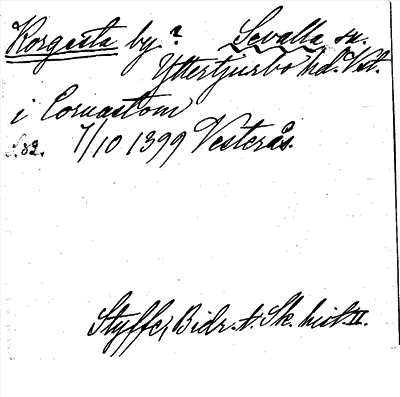 Korgesta by? Sevalla sn.
Yttertjurbo hd. Vstl.
i Cornastom
S.82. 7/10 1399 Vesterås.
Styffe, Bidr. t. Sk. hist. II.